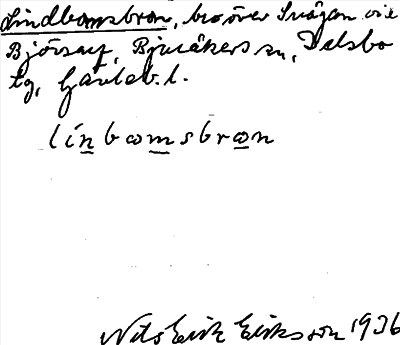 Lindbomsbron, bro över Svågan vid
Björsarv, Bjuråkers sn, Delsbo
tg, Gävleb. l.
linbomsbron
Nils Erik Eriksson 1936